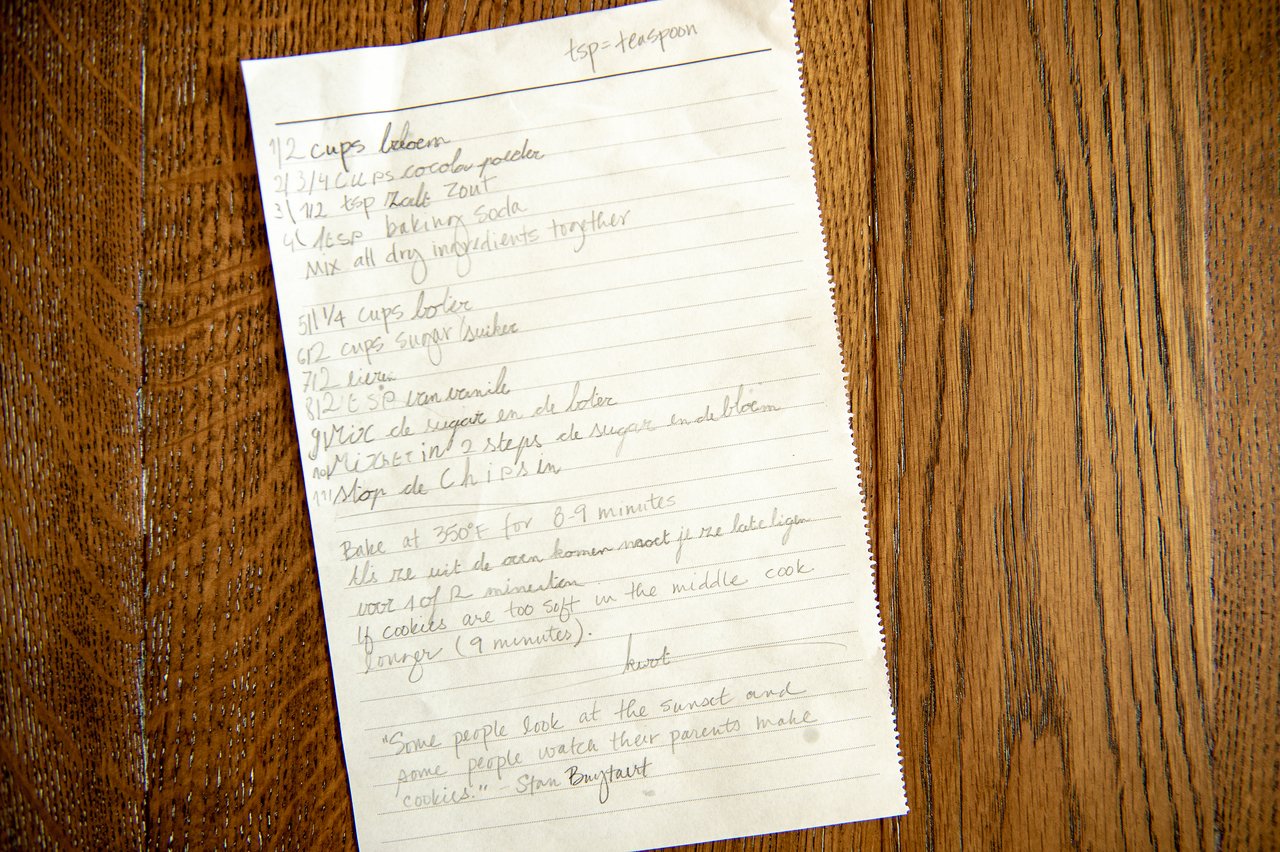 tsp = teaspoon
1/ 2 cups bloem
2/ 3/4 cups cocola poeder
3\ 1/2 tsp zalt zout
4\ 1tsp baking soda
Mix all dry ingredients together
5/ 1 1/4 cups boter
6/ 2 cups sugar/suiker
7/ 2 eieren
8/ 2 tsp van vanile
9/ Mix de sugar en de boter
10/ Mix het in 2 steps de sugar en de bloem
11/ stop de chips in
Bake at 350°F for 8-9 minutes
Als ze uit de oven komen moet je ze late ligen
voor 1 of 2 minuten
If cookies are too soft in the middle cook
longer (9 minutes).
kwot
"Some people look at the sunset and
some people watch their parents make
cookies." - Stan Buytaert